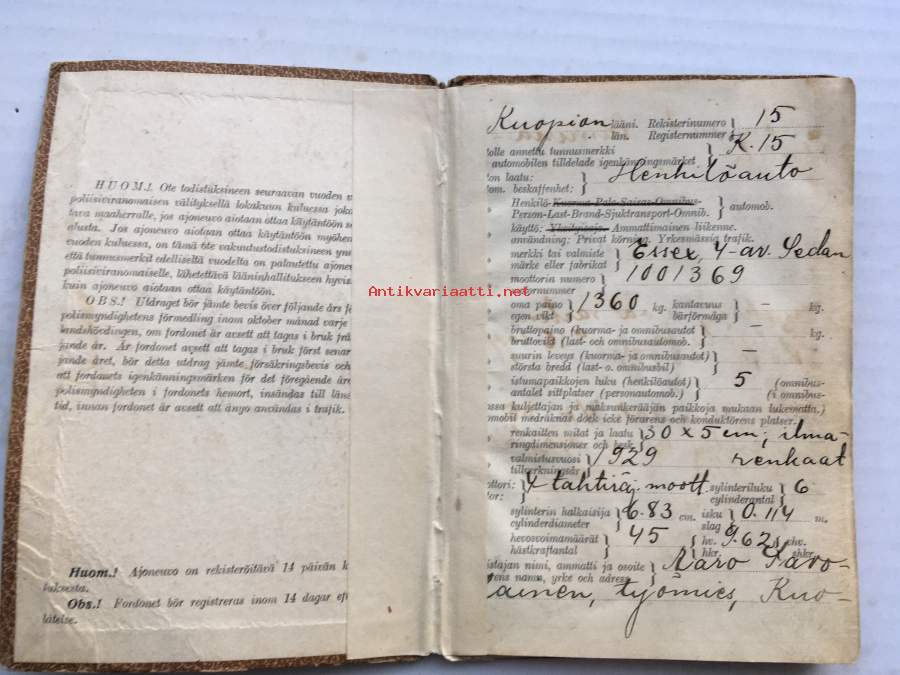 HUOM.! Ote todistuksineen seuraavan vuoden
poliisiviranomaisen välityksellä lokakuun kuluessa
tava maaherralle, jos ajoneuvo aiotaan ottaa käytäntöön
alusta. Jos ajoneuvo aiotaan ottaa käytäntöön
vuoden kuluessa, on tämä ote vakuutustodistuksineen
että tunnusmerkit edelliseltä vuodelta on palautettu
poliisiviranomaiselle, lähetettävä lääninhallitukseen
kuin ajoneuvo aiotaan ottaa käytäntöön.
OBS.! Utdraget bör jämte bevis över följande års
polismyndighetens förmedling inom oktober månad varje
landshövdingen, om fordonet är avsett att tagas i bruk
jande år. Är fordonet avsett att tagas i bruk först
jande året, bör detta utdrag jämte försäkringsbevis och
att fordonets igenkänningsmärken för det föregående
polismyndigheten i fordonets hemort, insändas till
tid, innan fordonet är avsett att ånyo användas i trafik.
Huom.! Ajoneuvo on rekisteröitävä 14 päivän
tuksesta.
Obs.! Fordonet bör registreras inom 14 dagar
låtelse.
Kuopion lääni. Rekisterinumero } 15
län. Registernummer
tolle annettu tunnusmerkki } K. 15
automobilen tilldelade igenkänningsmärket
ton laatu: } Henkilöauto
tom. beskaffenhet:
Henkilö-Kuorma-Palo-Sairas-Omnibus- } automob.
Person-Last-Brand-Sjuktransport-Omnib.
käyttö: Yksityisajo. Ammattimainen liikenne.
användning: Privat körning. Yrkesmässig trafik.
merkki tai valmiste } Essex, 4-ov. Sedan
märke eller fabrikat
moottorin numero } 1001369
motornummer
oma paino } 1360 kg. kantavuus } — kg.
egen vikt bärförmåga
bruttopaino (kuorma- ja omnibusautot } — kg.
bruttovikt (last- och omnibusautomob.
suurin leveys (kuorma- ja omnibusautot) } —
största bredd (last- o. omnibusbil)
istumapaikkojen luku (henkilöautot) } 5 (omnibus-
antalet sittplatser (personautomob.) (i omnibus-
ossa kuljettajan ja maksunkerääjän paikkoja mukaan lukematta.)
mobil medräknas dock icke förarens och konduktörens platser.
renkaitten mitat ja laatu } 30 x 5 cm; ilma-
ringdimensioner och besk.
valmistusvuosi } 1929 renkaat
tillverkningsår
ottori: } 4-tahtinä. moott. sylinteriluku } 6
tor: cylinderantal
sylinterin halkaisija } 6.83 cm. isku } 0.114 m.
cylinderdiameter slag
hevosvoimamäärät } 45 hv. 9.62
hästkraftantal hkr.
istajan nimi, ammatti ja osoite } Aaro Savo-
rens namn, yrke och adress
lainen, työmies, Kuo-
Antikvariaatti.net